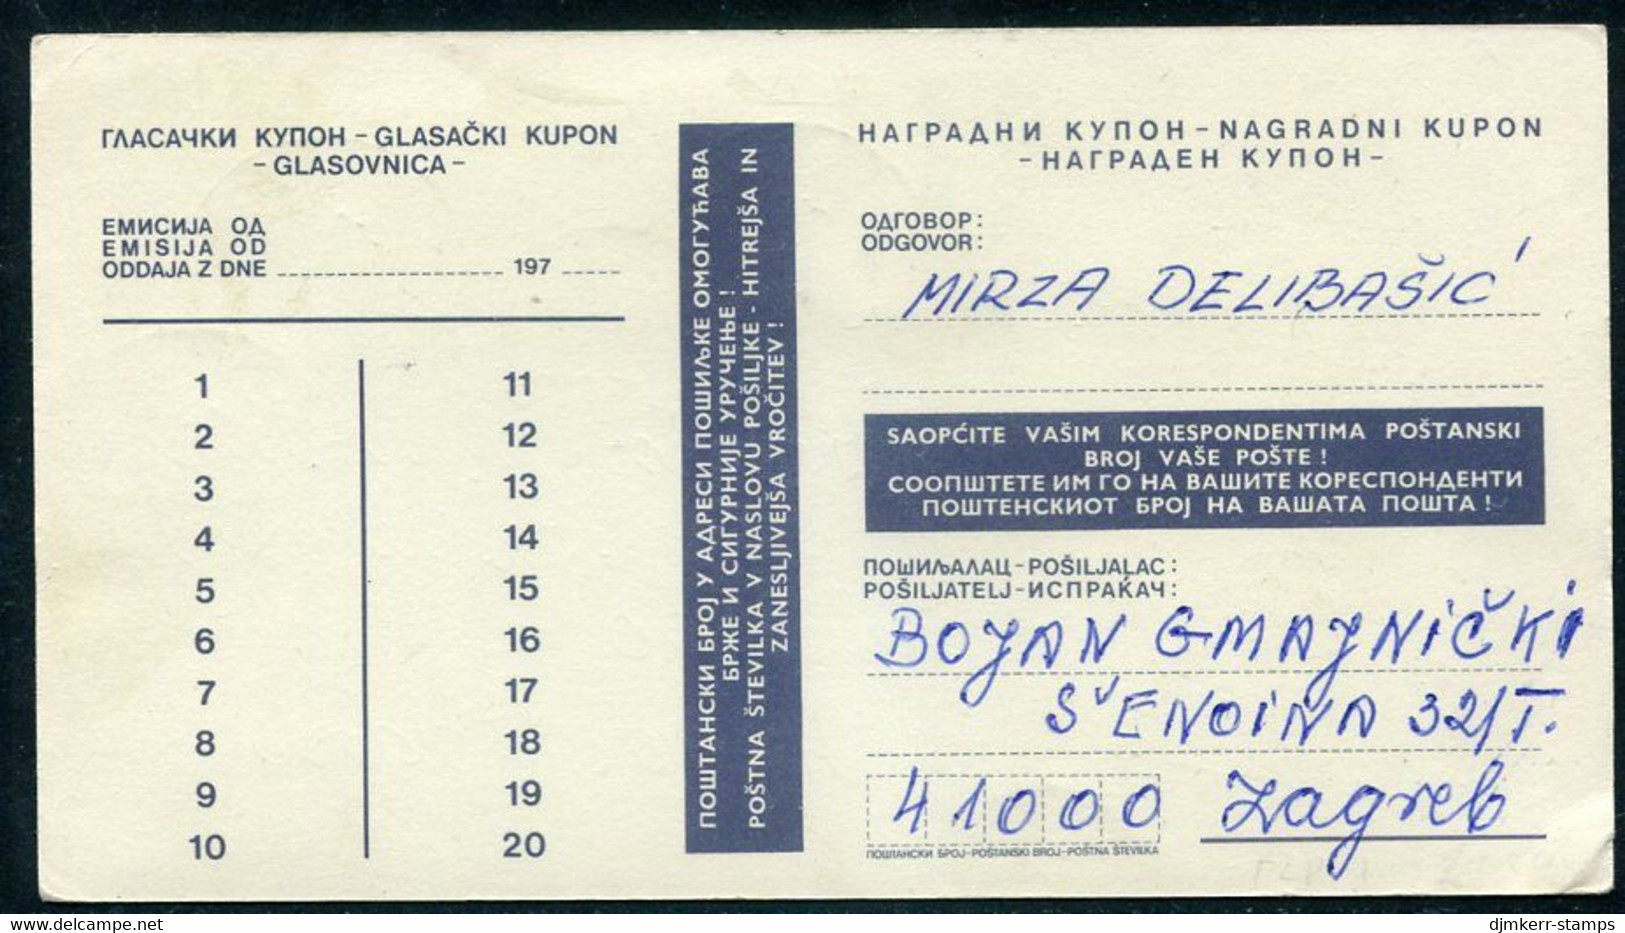 ГЛАСАЧКИ КУПОН - GLASAČKI KUPON
- GLASOVNICA -
ЕМИСИЈА ОД
EMISIJA OD
ODDAJA Z DNE 197
1
2
3
4
5
6
7
8
9
10
11
12
13
14
15
16
17
18
19
20
ПОШТАНСКИ БРОЈ У АДРЕСИ ПОШИЉКЕ ОМОГУЋАВА
БРЖЕ И СИГУРНИЈЕ УРУЧЕЊЕ !
POŠTNA ŠTEVILKA V NASLOVU POŠILJKE - HITREJŠA IN
ZANESLJIVEJŠA VROČITEV !
НАГРАДНИ КУПОН - NAGRADNI KUPON
- НАГРАДЕН КУПОН -
ОДГОВОР :
ODGOVOR :
MIRZA DELIBAŠIĆ
SAOPĆITE VAŠIM KORESPONDENTIMA POŠTANSKI
BROJ VAŠE POŠTE !
СООПШТЕТЕ ИМ ГО НА ВАШИТЕ КОРЕСПОНДЕНТИ
ПОШТЕНСКИОТ БРОЈ НА ВАШАТА ПОШТА !
ПОШИЉАЛАЦ - POŠILJALAC :
POŠILJATELJ - ИСПРАЌАЧ :
BOJAN GMAJNIČKI
ŠENOINA 32/I.
41000 Zagreb
ПОШТАНСКИ БРОЈ-POŠTANSKI BROJ-POŠTNA ŠTEVILKA
delcampe.net
djmkerr-stamps